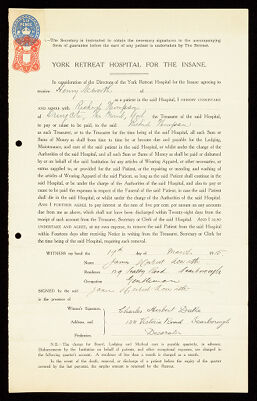 —The Secretary is instructed to obtain the necessary signatures to the accompanying
form of guarantee before the name of any patient is undertaken by The Retreat.
YORK RETREAT HOSPITAL FOR THE INSANE.
In consideration of the Directors of the York Retreat Hospital for the Insane agreeing to
receive Henry
as a patient in the said Hospital, I HEREBY UNDERTAKE
AND AGREE with Richard Thompson
of the Treasurer of the said Hospital,
to pay or cause to be paid to the said Richard Thompson
as such Treasurer, or to the Treasurer for the time being of the said Hospital, all such Sum or
Sums of Money as shall from time to time be or become due and payable for the Lodging,
Maintenance, and care of the said patient in the said Hospital, or whilst under the charge of
the Authorities of the said Hospital, and all such Sum or Sums of Money as shall be paid or disbursed
by or on behalf of the said Institution for any articles of Wearing Apparel, or other necessaries, or
extras supplied to, or provided for the said Patient, or the repairing or mending and washing of
the articles of Wearing Apparel of the said Patient, so long as the said Patient shall continue in the
said Hospital, or be under the charge of the Authorities of the said Hospital, and also to pay or
cause to be paid the expenses in respect of the Funeral of the said Patient, in case the said Patient
shall die in the said Hospital, or whilst under the charge of the Authorities of the said Hospital.
AND I FURTHER AGREE, to pay interest at the rate of five per cent per annum on any accounts
due from me as above, which shall not have been discharged within Twenty-eight days from the
receipt of such account from the Treasurer, Secretary or Clerk of the said Hospital. AND I ALSO
UNDERTAKE AND AGREE, at my own expense, to remove the said Patient from the said Hospital
within Fourteen days after receiving Notice in writing from the Treasurer, Secretary or Clerk for
the time being of the said Hospital, requiring such removal.
WITNESS my hand the 19th day of March
Name James
Residence Road Scarborough
Occupation Gentleman
SIGNED by the said James
in the presence of
Witness's Signature, Charles Herbert
Address, and 124 Victoria Road Scarborough
Profession Decorator
N.B.—The charges for Board, Lodging and Medical care is payable quarterly, in advance.
Disbursements by the Institution on behalf of patients, and other occasional expenses, are charged in
the following quarter's account. A residence of less than a month is charged as a month.
In the event of the death, removal or discharge of a patient before the expiry of the quarter
covered by the last payment, the surplus amount is returned by the Retreat.